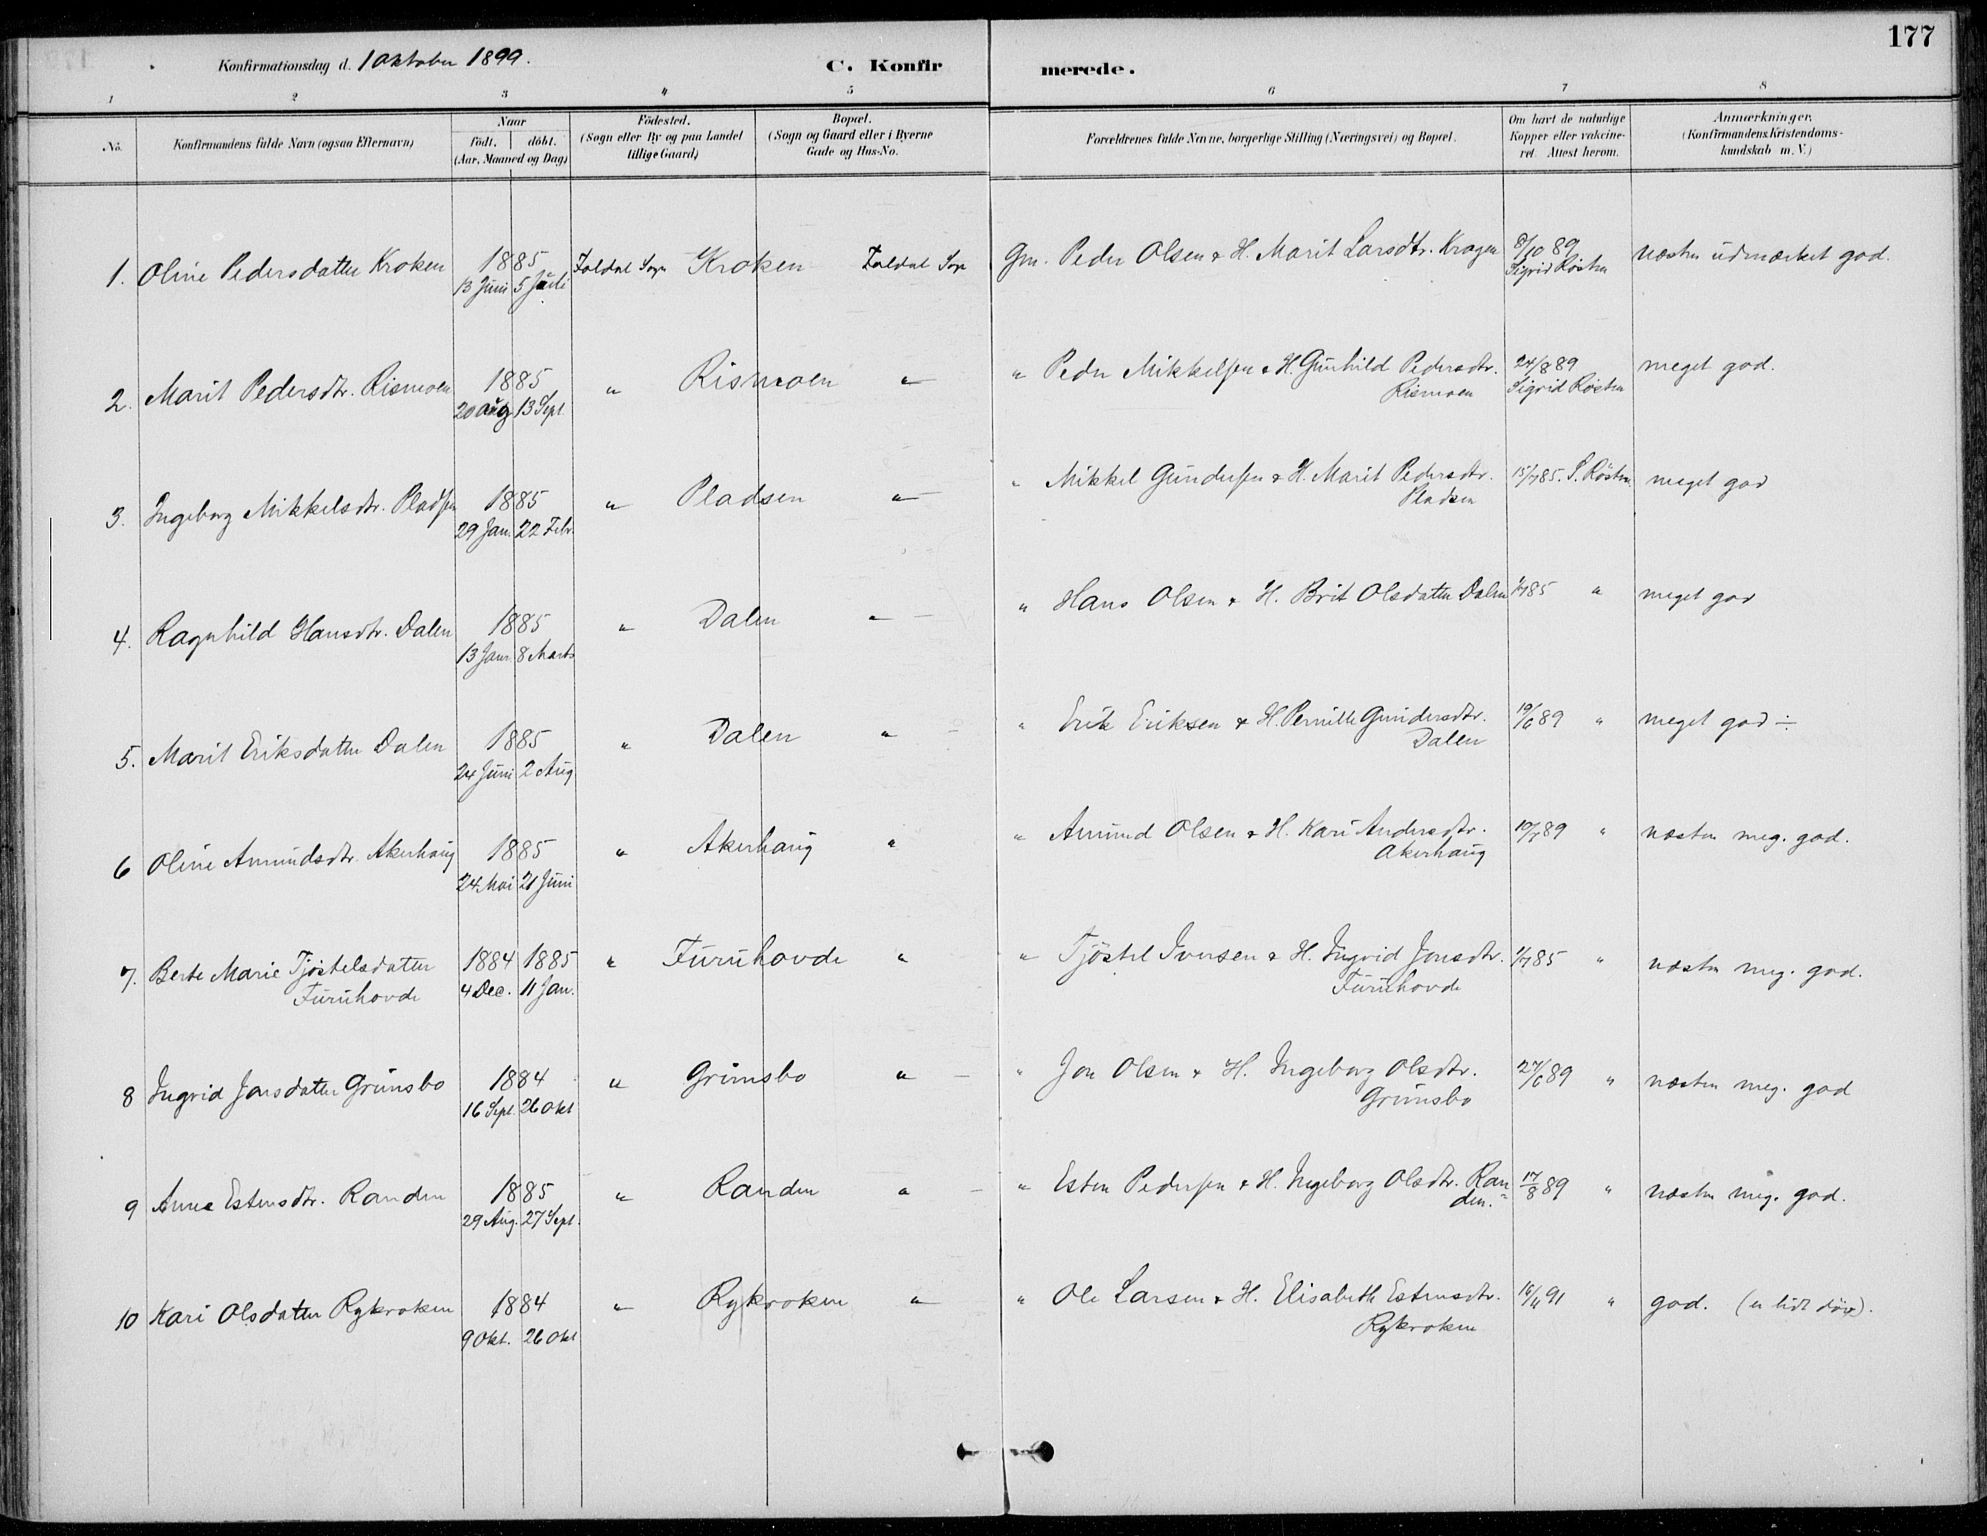 177
Konfirmationsdag d. 1 Oktober 1899.
C. Konfirmerede.
1 2 3 4 5 6 7 8
No.
Konfirmandens fulde Navn (ogsaa Efternavn)
Naar
födt. döbt.
(Aar, Maaned og Dag)
Födested.
(Sogn eller By og paa Landet
tillige Gaard)
Bopæl.
(Sogn og Gaard eller i Byerne
Gade og Hus-No.
Forældrenes fulde Navne, borgerlige Stilling (Næringsvei) og Bopæl.
Om havt de naturlige
Kopper eller vakcine-
ret. Attest herom.
Anmærkninger.
(Konfirmandens Kristendoms-
kundskab m. V.)
1. Oline Pedersdatter Kroken 1885 Foldal Sogn Kroken Foldal Sogn Gm. Peder Olsen & H. Marit Larsdtr. Krogen 8/10 89 næsten udmærket god.
13 Juni 5 Juli Sigrid Røsten
2. Marit Pedersdtr. Rismoen 1885 " Rismoen " " Peder Mikkelsen & H. Gunhild Pedersdtr. 24/8 89 meget god.
20 Aug 13 Sept. Rismoen Sigrid Røsten
3. Ingeborg Mikkelsdtr. Pladsen 1885 " Pladsen " " Mikkel Gundersen & H. Marit Pedersdtr. 15/7 85. S. Røsten meget god
29 Jan. 22 Febr. Pladsen
4. Ragnhild Hansdtr. Dalen 1885 " Dalen " " Hans Olsen & H. Brit Olsdatter Dalen 1/7 85 " meget god
13 Janr. 8 Marts
5. Marit Eriksdatter Dalen 1885 " Dalen " " Erik Eriksen & H. Pernille Gundersdtr. 19/6 89 " meget god ÷
24 Juni 2 Aug Dalen
6 Oline Amundsdtr. Akerhaug 1885 " Akerhaug " " Amund Olsen & H. Kari Andersdtr. 19/7 89 " næsten meg. god.
24 Mai 21 Juni Akerhaug
7. Berte Marie Tjøstelsdatter 1884 1885 " Furuhovde " " Tjøstel Iversen & H. Ingrid Jonsdtr. 1/7 85 " næsten meg. god.
Furuhovde 4 Dec. 11 Jan. Furuhovde
8 Ingrid Jonsdatter Grimsbo 1884 " Grimsbo " " Jon Olsen & H. Ingeborg Olsdtr. 27/6 89 " næsten meg. god
16 Sept 26 Okt Grimsbo
9 Anne Estensdtr. Randen 1885 " Randen " " Esten Pedersen & H. Ingeborg Olsdtr. Ran- 17/8 89 " næsten meg. god.
29 Aug. 27 Sept. den.
10 Kari Olsdatter Rykroken 1884 " Rykroken " " Ole Larsen & H. Elisabeth Estensdtr. 16/11 91 " god. (er lidt døv).
9 Okt. 26 Okt Rykroken